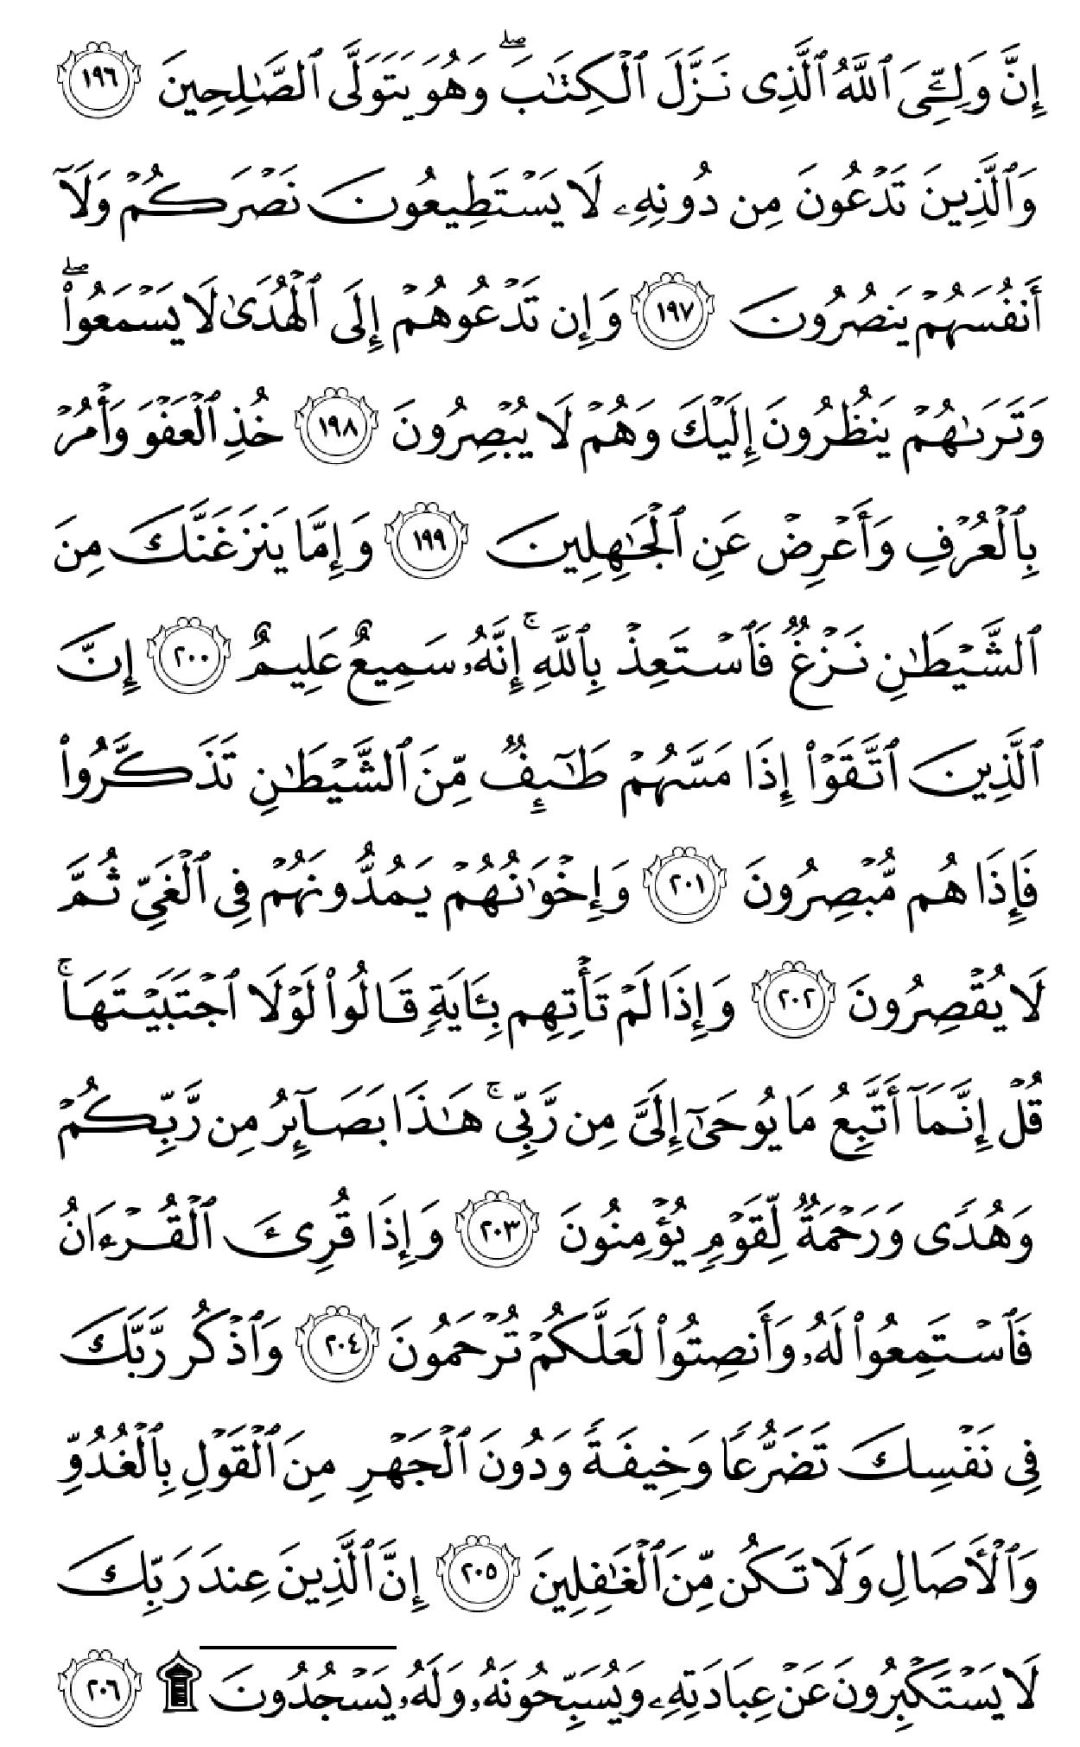 إِنَّ وَلِـِّۧىَ ٱللَّهُ ٱلَّذِى نَزَّلَ ٱلْكِتَـٰبَ ۖ وَهُوَ يَتَوَلَّى ٱلصَّـٰلِحِينَ ١٩٦
وَٱلَّذِينَ تَدْعُونَ مِن دُونِهِۦ لَا يَسْتَطِيعُونَ نَصْرَكُمْ وَلَآ
أَنفُسَهُمْ يَنصُرُونَ ١٩٧ وَإِن تَدْعُوهُمْ إِلَى ٱلْهُدَىٰ لَا يَسْمَعُوا۟ ۖ
وَتَرَىٰهُمْ يَنظُرُونَ إِلَيْكَ وَهُمْ لَا يُبْصِرُونَ ١٩٨ خُذِ ٱلْعَفْوَ وَأْمُرْ
بِٱلْعُرْفِ وَأَعْرِضْ عَنِ ٱلْجَـٰهِلِينَ ١٩٩ وَإِمَّا يَنزَغَنَّكَ مِنَ
ٱلشَّيْطَـٰنِ نَزْغٌ فَٱسْتَعِذْ بِٱللَّهِ ۚ إِنَّهُۥ سَمِيعٌ عَلِيمٌ ٢٠٠ إِنَّ
ٱلَّذِينَ ٱتَّقَوْا۟ إِذَا مَسَّهُمْ طَـٰٓئِفٌ مِّنَ ٱلشَّيْطَـٰنِ تَذَكَّرُوا۟
فَإِذَا هُم مُّبْصِرُونَ ٢٠١ وَإِخْوَٰنُهُمْ يَمُدُّونَهُمْ فِى ٱلْغَىِّ ثُمَّ
لَا يُقْصِرُونَ ٢٠٢ وَإِذَا لَمْ تَأْتِهِم بِـَٔايَةٍ قَالُوا۟ لَوْلَا ٱجْتَبَيْتَهَا ۚ
قُلْ إِنَّمَآ أَتَّبِعُ مَا يُوحَىٰٓ إِلَىَّ مِن رَّبِّى ۚ هَـٰذَا بَصَآئِرُ مِن رَّبِّكُمْ
وَهُدًى وَرَحْمَةٌ لِّقَوْمٍ يُؤْمِنُونَ ٢٠٣ وَإِذَا قُرِئَ ٱلْقُرْءَانُ
فَٱسْتَمِعُوا۟ لَهُۥ وَأَنصِتُوا۟ لَعَلَّكُمْ تُرْحَمُونَ ٢٠٤ وَٱذْكُر رَّبَّكَ
فِى نَفْسِكَ تَضَرُّعًا وَخِيفَةً وَدُونَ ٱلْجَهْرِ مِنَ ٱلْقَوْلِ بِٱلْغُدُوِّ
وَٱلْـَٔاصَالِ وَلَا تَكُن مِّنَ ٱلْغَـٰفِلِينَ ٢٠٥ إِنَّ ٱلَّذِينَ عِندَ رَبِّكَ
لَا يَسْتَكْبِرُونَ عَنْ عِبَادَتِهِۦ وَيُسَبِّحُونَهُۥ وَلَهُۥ يَسْجُدُونَ ۩ ٢٠٦